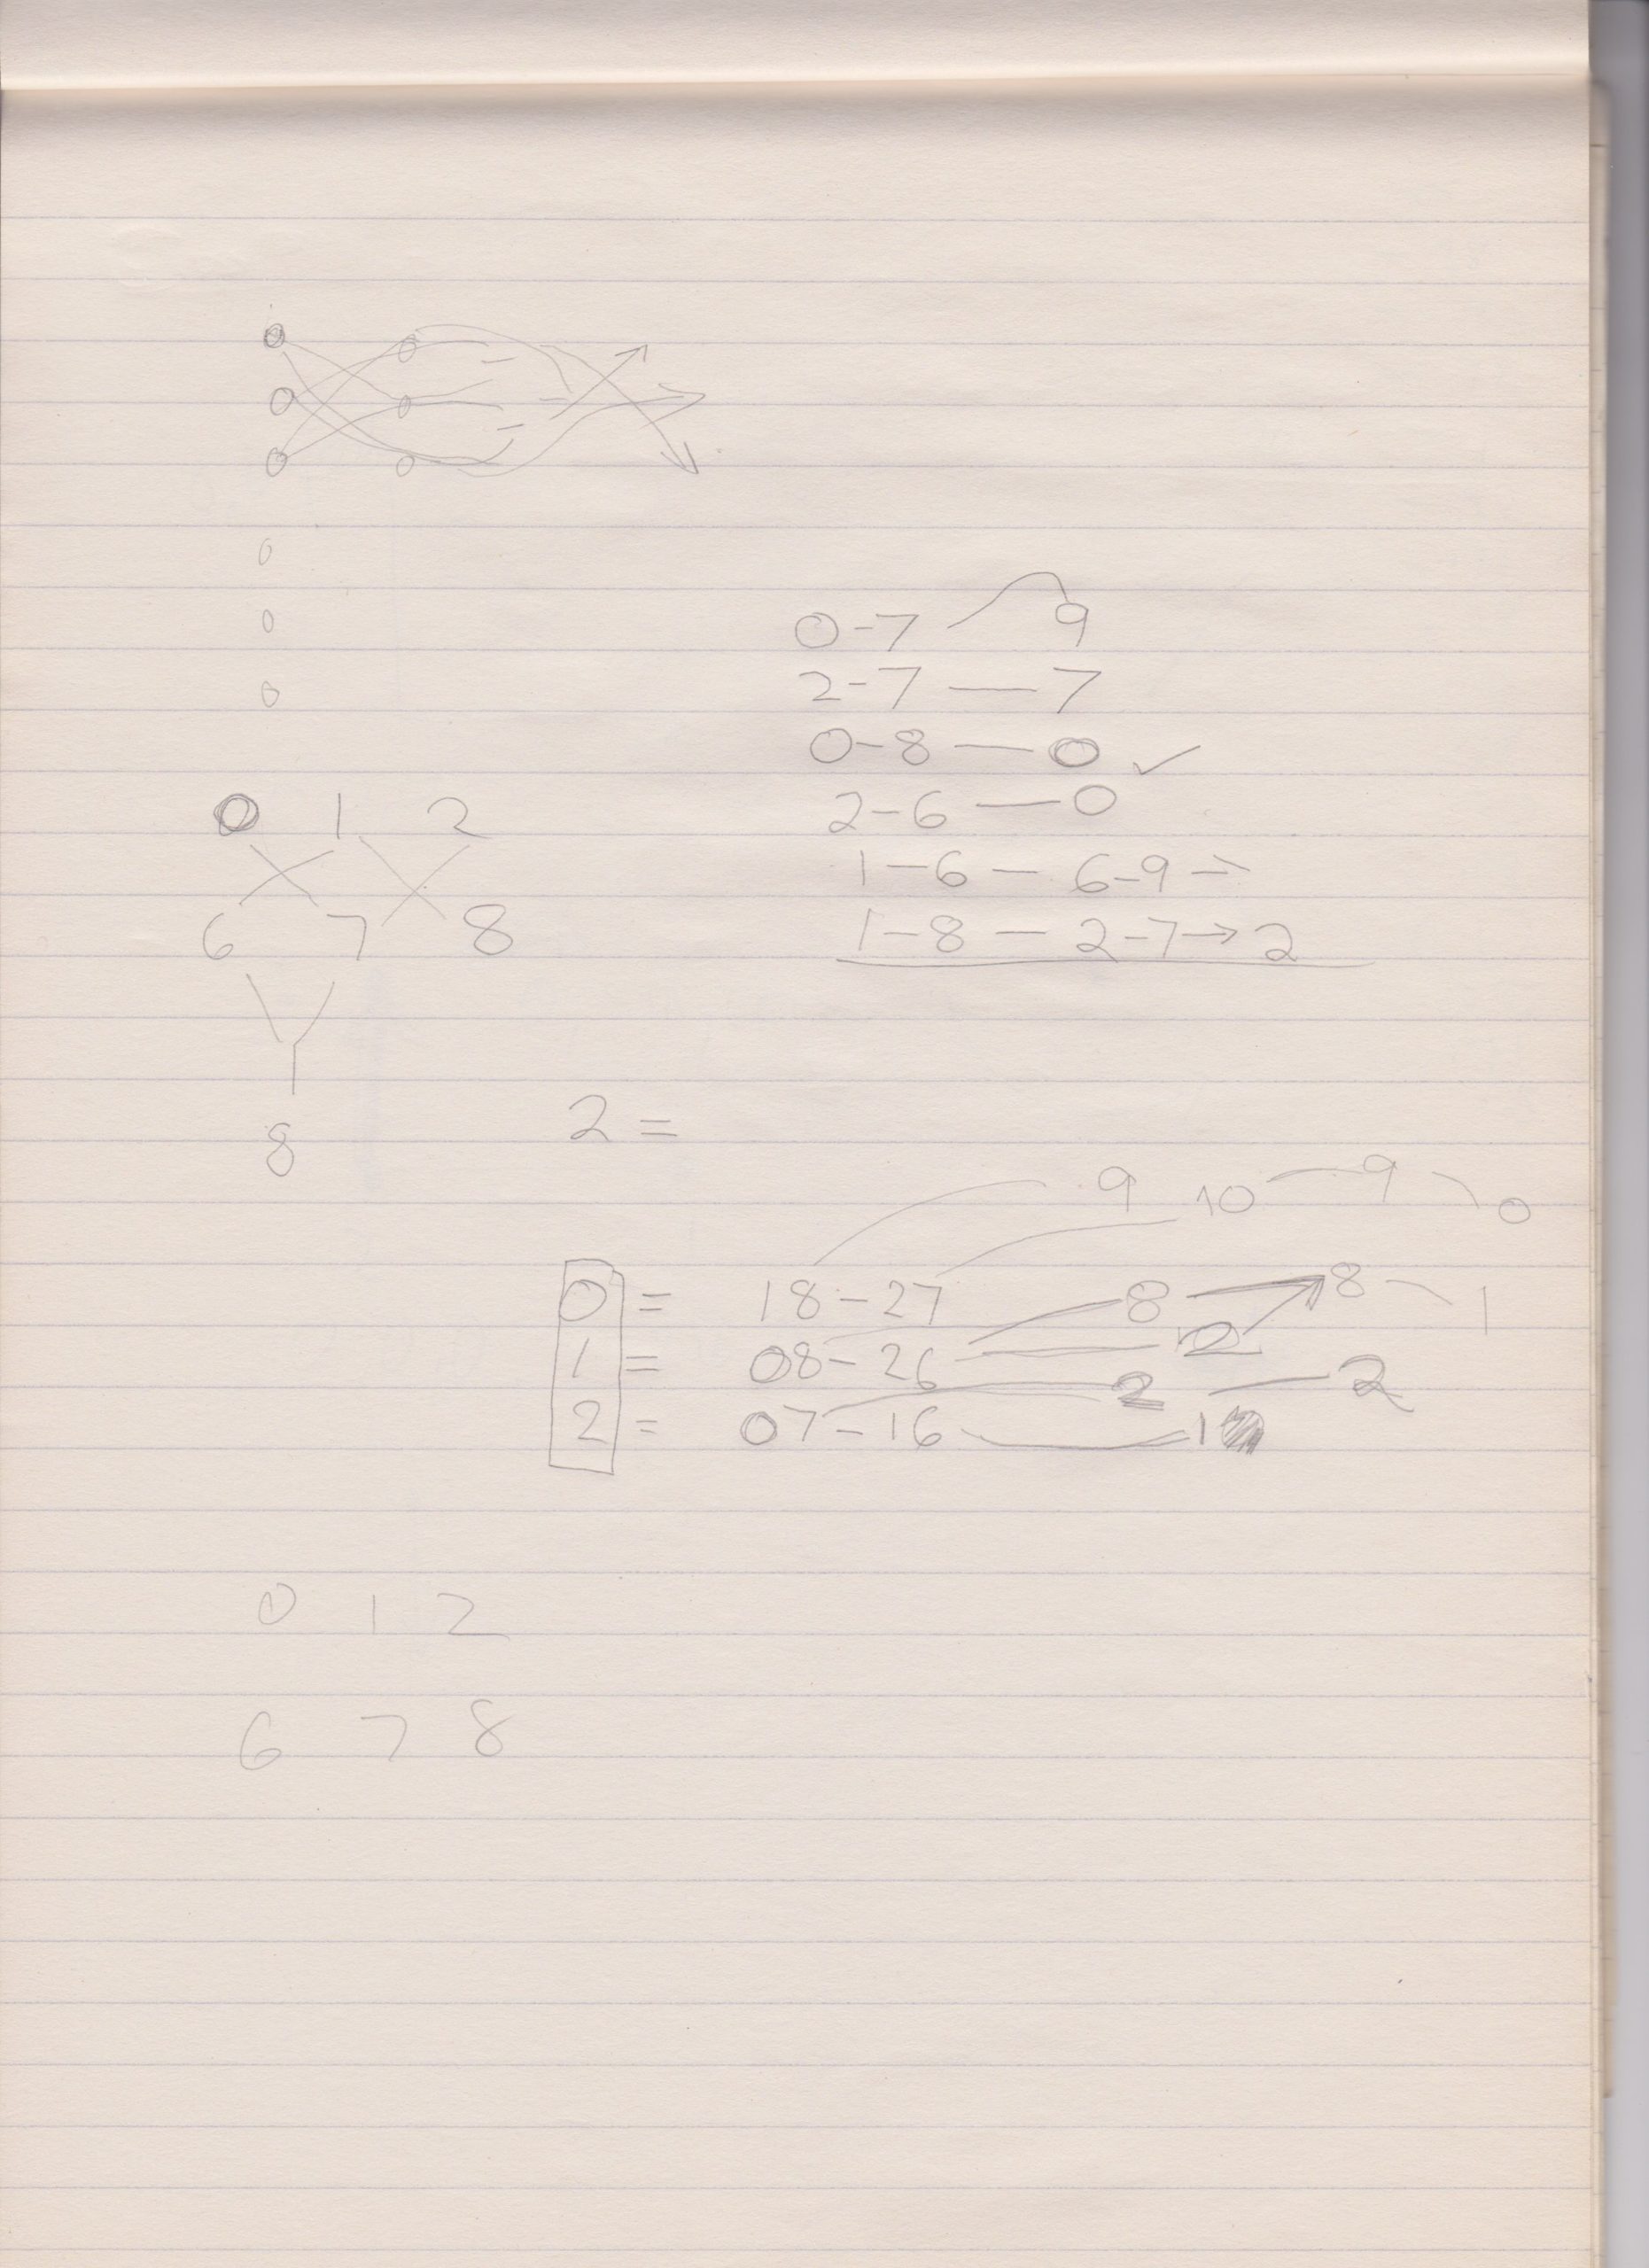 0
0
0
0-7 9
2-7 — 7
0-8 — 0 ✓
2-6 — 0
1-6 — 6-9 →
1-8 — 2-7 → 2
0 1 2
6 7 8
8
2 =
9 10 9 0
0 = 18-27 8 → 8 1
1 = 08-26 2
2 = 07-16 2 — 2
0 1 2
6 7 8